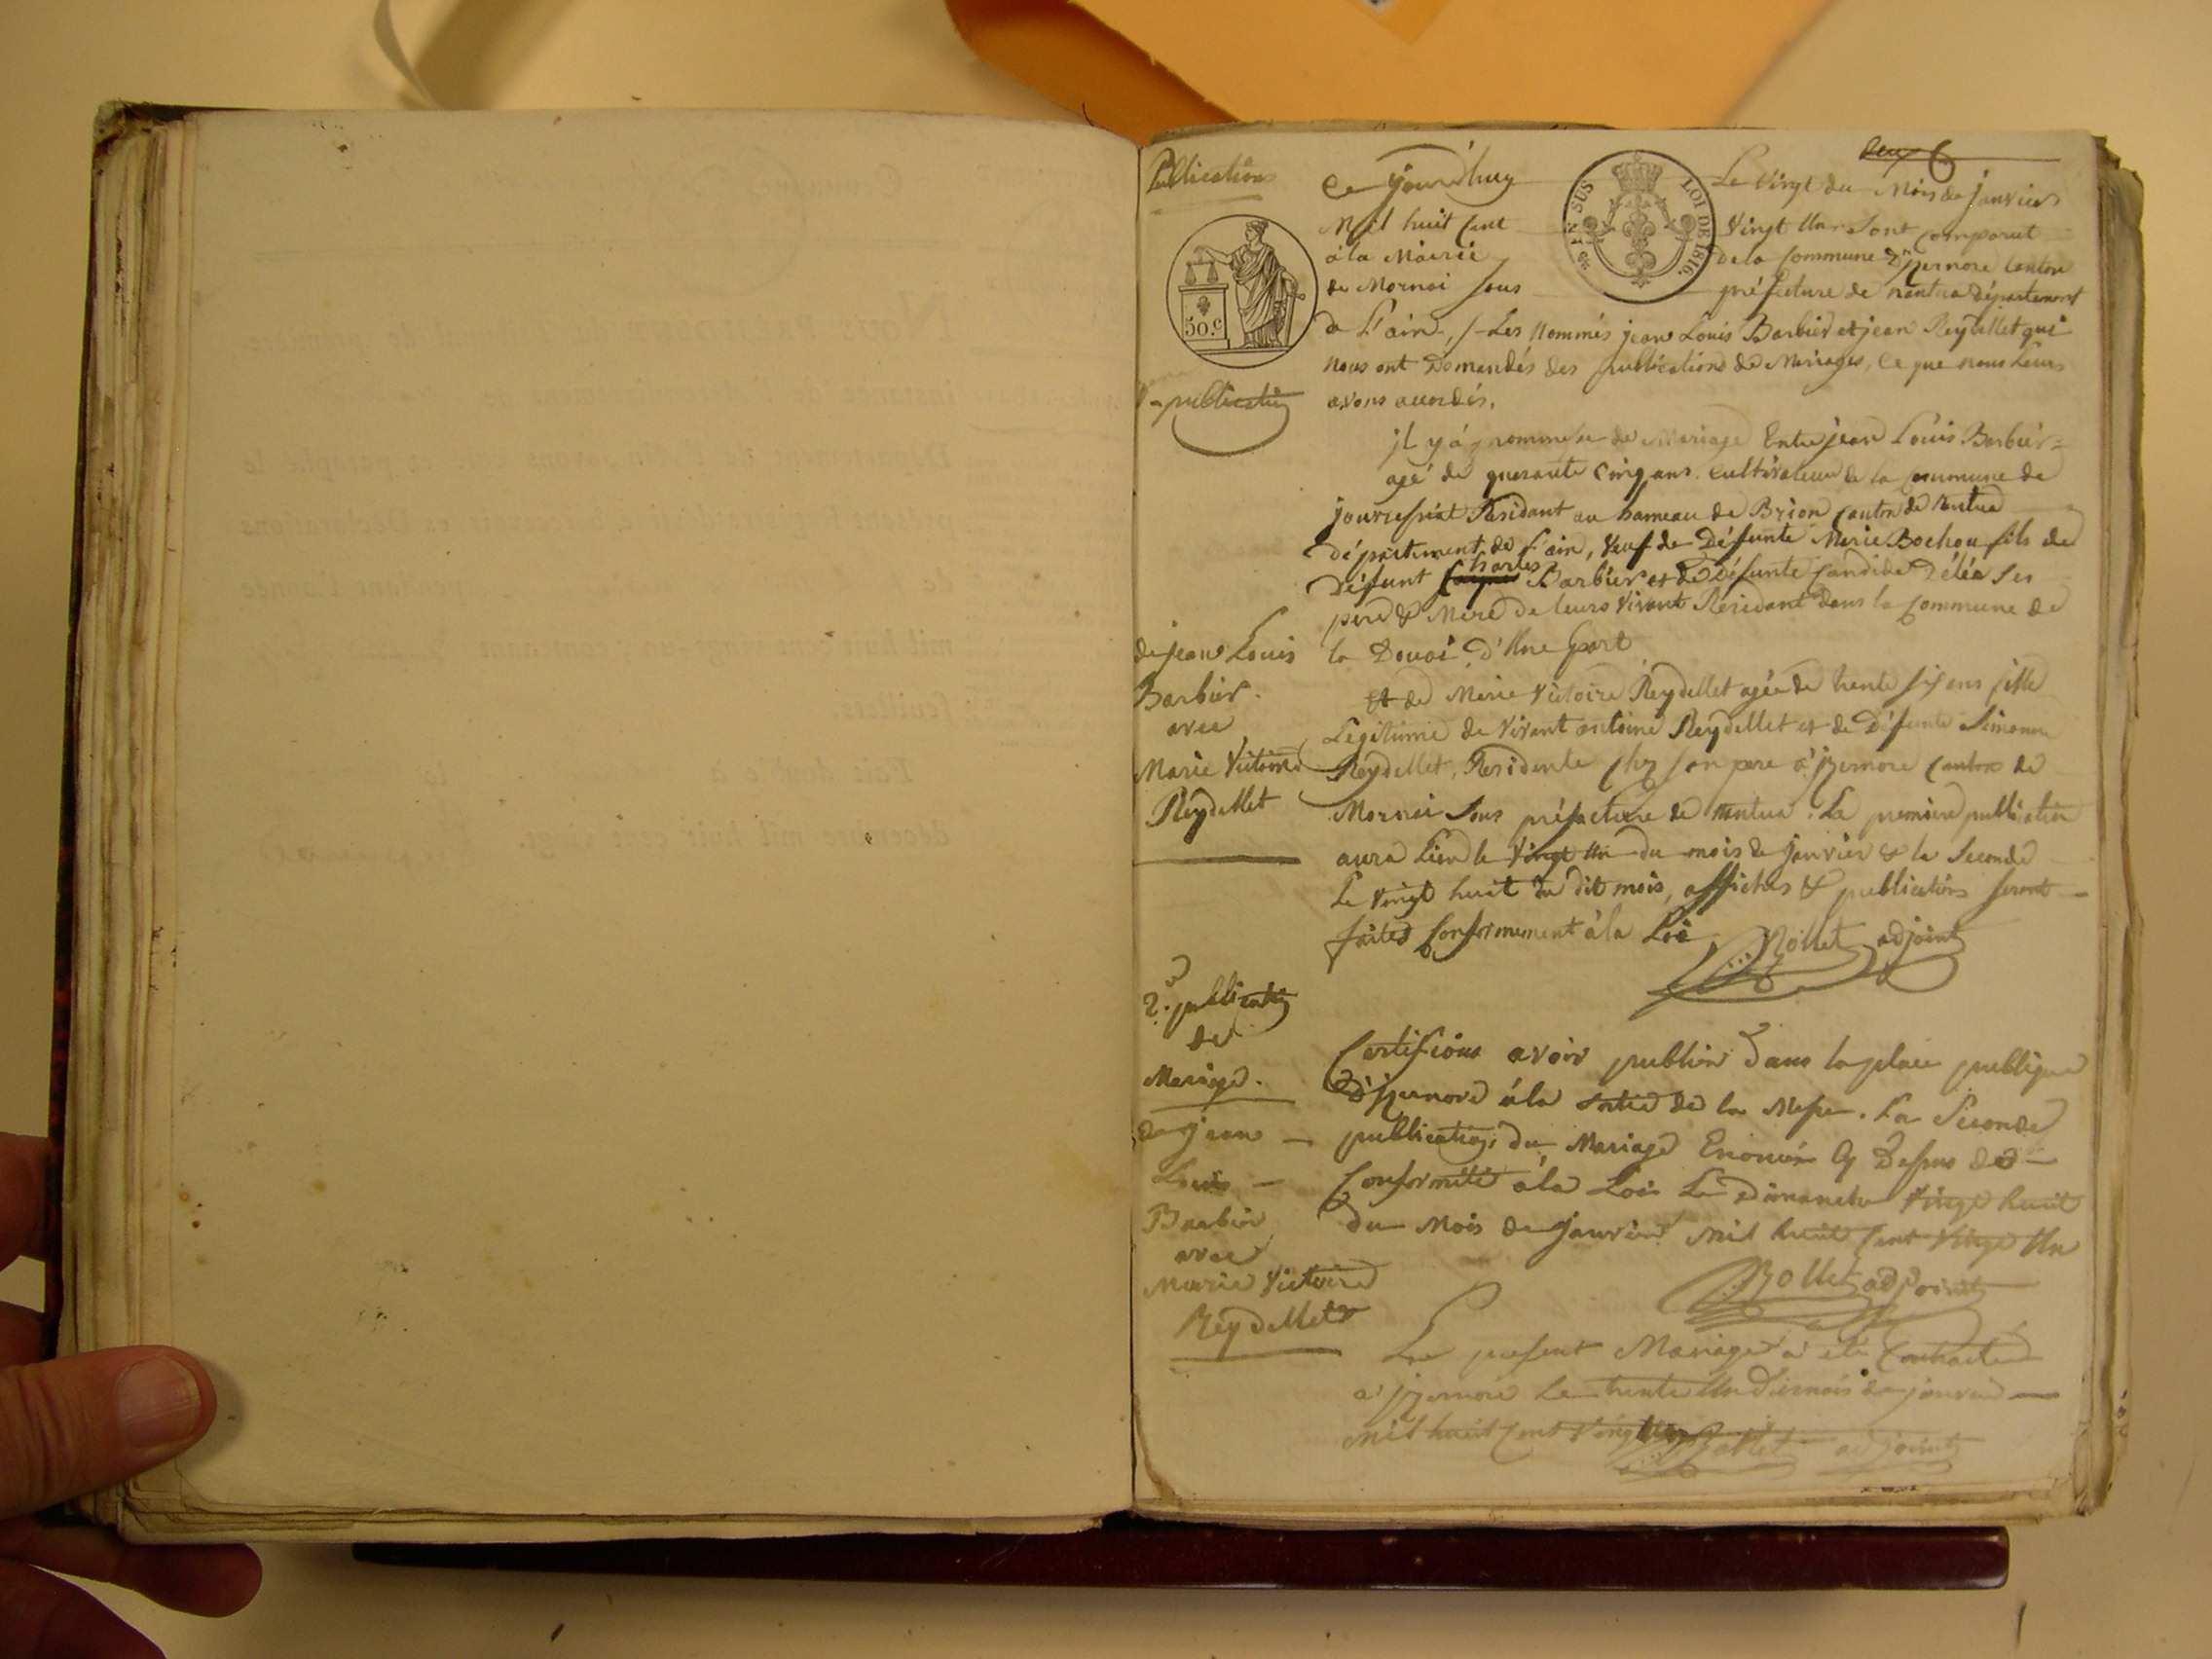 Publications
deux
50.c
EN SUS
LOI DE 1816.
Ce jourd'huy Le Vingt du Mois de janvier
Mil huit Cent Vingt Un Sont Comparut
à la Mairie de la Commune d'jzernore Canton
de Mornai Sous préfecture de nantua département
de L'ain, Les Nommés jean Louis Barbier et jean Reydellet qui
nous ont Demandés des publications de Mariages, Ce que nous Leurs
avons accordés.
publication
jl y á promesse de Mariage Entre jean Louis Barbier
agé de quarante Cinq ans. Cultivateur de la Commune de
Résidant au hameau de Brion Canton de Nantua
département de l'ain, Veuf de Défunte Marie Bochou fils de
Défunt Charles Barbier et de Défunte Candide Déléa Ses
pere & Mere de leurs Vivant Résidant dans la Commune de
la Douai d'Une part
de jean Louis
Barbier.
avec
Marie Victoire
Reydellet
Et de Marie Victoire Reydellet agée de trente six ans fille
Légitime de Vivant antoine Reydellet et de Défunte Simonne
Reydellet, Residente Chez son pere à jzernore Canton de
Mornai Sous préfacture de nantua. La premiere publication
aura Lieu le Vingt Un du mois de janvier & la Seconde
Le Vingt huit du dit mois, affiches & publications Seront
faites Conformement à la Loi Rollet adjoint
2.e publication
de
Mariage.
de jean
Louis
Barbier
avec
Marie Victoire
Reydellet
Certifions avoir publier Dans la place publique
D'jzernore à la Sortie de la Messe. La Seconde
publication du Mariage Enoncée Cy Dessus de
Conformité à la Loi Le Dimanche Vingt huit
Du Mois de janvier Mil huit Cent Vingt Un
Rollet adjoint
Le present Mariage à été Contracté
à jzernore Le trente Un du mois de janvier
Mil huit Cent Vingt Un Rollet adjoint